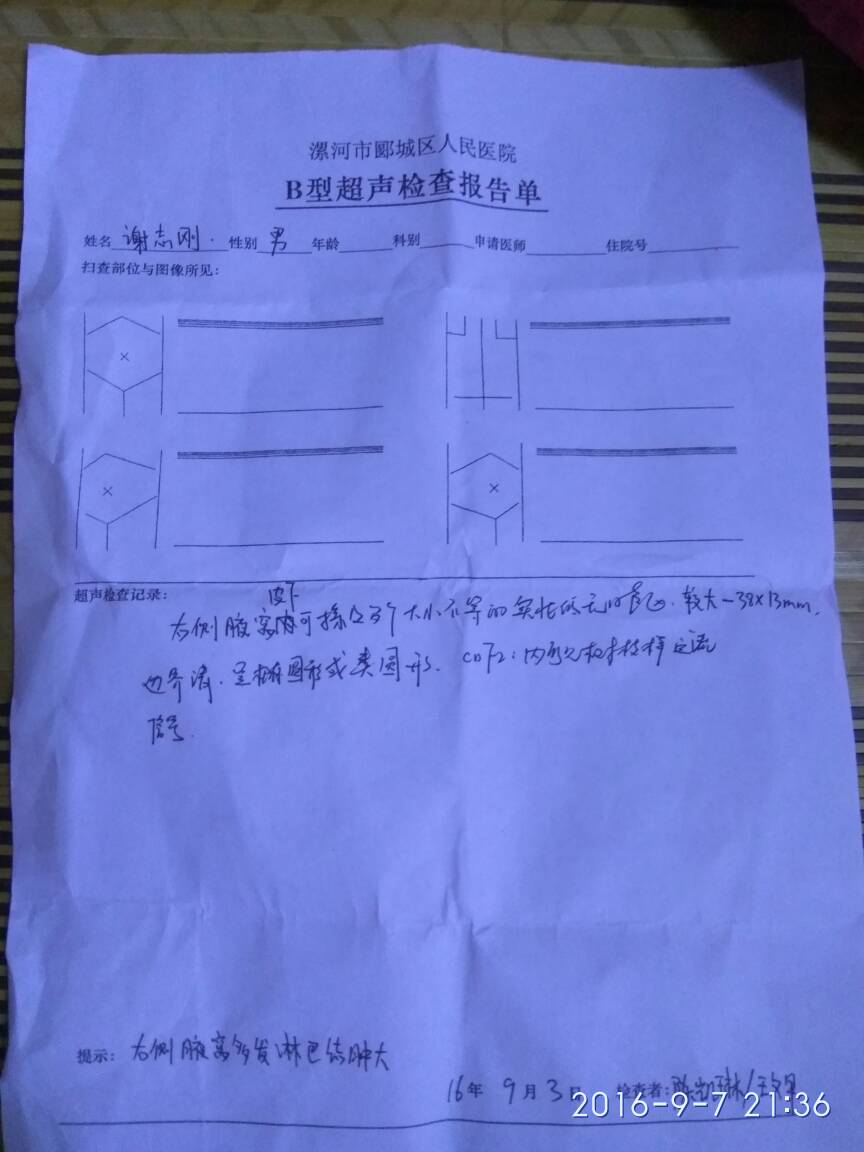 漯河市郾城区人民医院
B型超声检查报告单
姓名 谢志刚. 性别 男 年龄 科别 申请医师 住院号
扫查部位与图像所见：
超声检查记录：
皮下
右侧腋窝 可探及 个大小不等的实性低 回声 较大一38×13mm.
边界清.呈椭圆形或类圆形. 血流
信号.
提示：右侧腋窝多发淋巴结肿大
16年 9月 3日 检查者：
2016-9-7 21:36